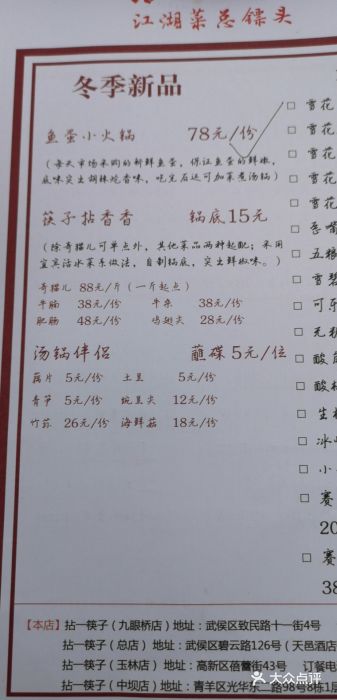 江湖菜总镖头
冬季新品
鱼蛋小火锅 78元/份
(每天市场采购的新鲜鱼蛋，保证鱼蛋的鲜嫩，
底味突出胡辣烧香味，吃完后还可加菜煮汤锅)
筷子拈香香 锅底15元
(除奇猫儿可单点外，其他菜品两种起配；采用
宜宾活水菜系做法，自制锅底，突出鲜椒味。)
奇猫儿 88元/斤 (一斤起点)
牛肠 38元/份 牛杂 38元/份
肥肠 48元/份 鸡翅尖 28元/份
汤锅伴侣 蘸碟5元/位
藕片 5元/份 土豆 5元/份
青笋 5元/份 豌豆尖 12元/份
竹荪 26元/份 海鲜菇 18元/份
□ 雪花
□ 雪花
□ 雪花
□ 雪花
□ 雪花
□ 歪嘴
□ 五粮
□ 雪碧
□ 可乐
□ 无糖
□ 酸
□ 酸
□ 生
□ 冰
□ 小
□ 赛
20
□ 赛
38
【本店】
拈一筷子（九眼桥店）地址：武侯区致民路十一街4号
拈一筷子（总店）地址：武侯区碧云路126号（天邑酒店
拈一筷子（玉林店）地址：高新区蓓蕾街43号 订餐电
拈一筷子（中坝店）地址：青羊区光华东二路98号8栋1层
大众点评